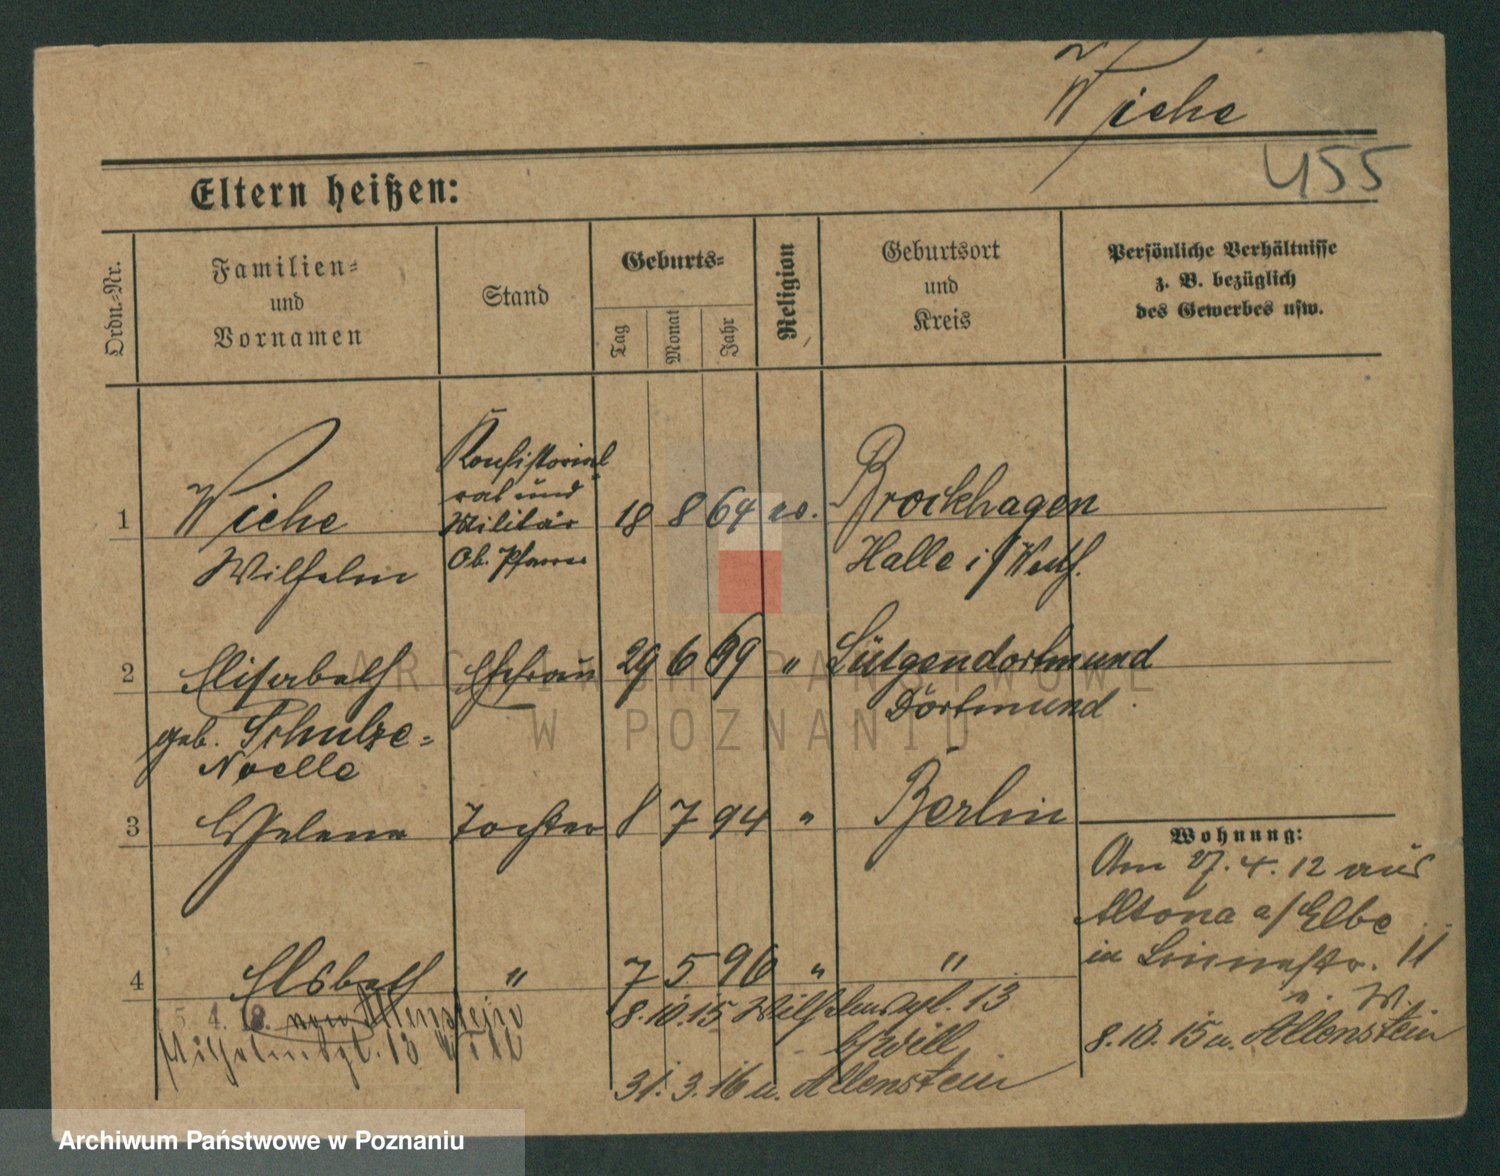 Wiehe
455
Eltern heißen:
Ordn.-Nr.
Familien-
und
Vornamen
Stand
Geburts-
Tag
Monat
Jahr
Religion
Geburtsort
und
Kreis
Persönliche Verhältnisse
z. B. bezüglich
des Gewerbes usw.
1
Wiehe
Wilhelm
Konsistorial
rat und
Militär
Ob. Pfarrer
18 8 64 ev.
Brockhagen
Halle i/Westf.
2
Elisabeth
geb. Schulze-
Noelle
Ehefrau
29 6 69 "
Lütgendortmund
Dortmund
3
Helene
Tochter
8 7 94 "
Berlin
4
Elsbeth
"
7 5 96 "
"
5. 4. 18. von Allenstein
Wilhelmspl. 13
8.10.15 Wilhelmspl. 13
31.3.16 n. Allenstein
Wohnung:
Am 27.4.12 aus
Altona a/Elbe
in 11
8.10.15 n. Allenstein
ARCHIWUM PAŃSTWOWE
W POZNANIU
Archiwum Państwowe w Poznaniu